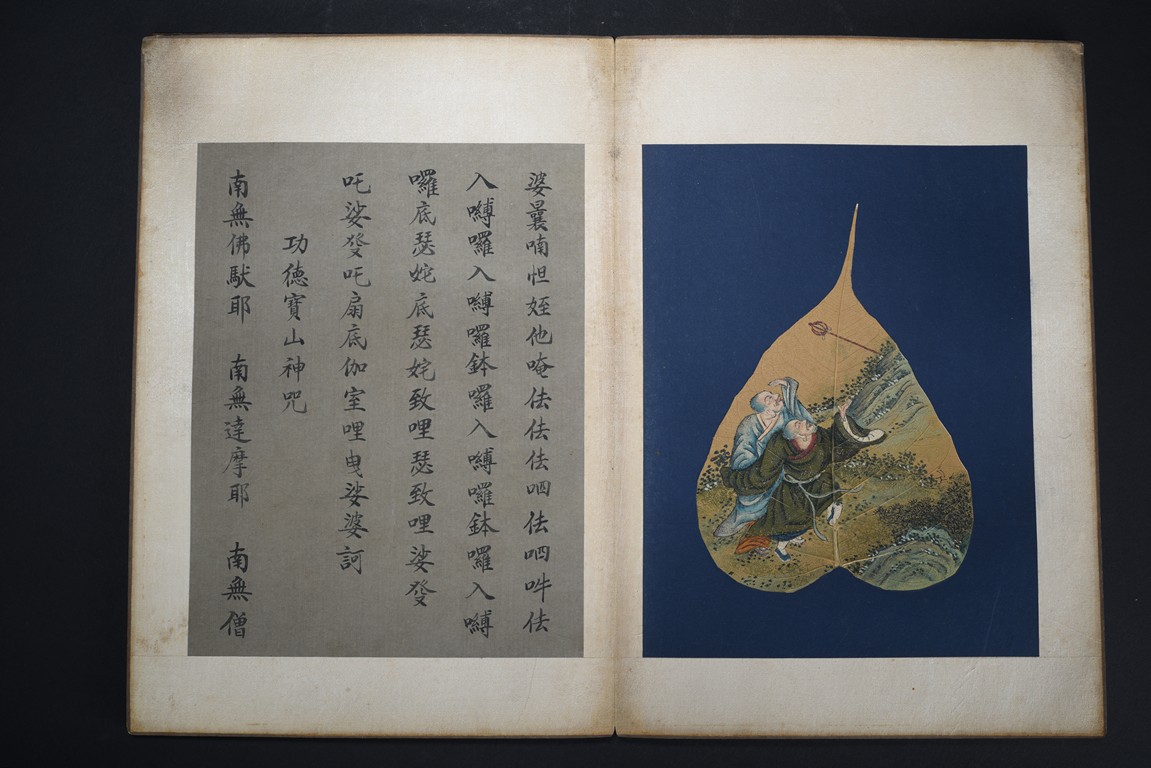 婆曩喃怛姪他唵佉佉佉呬佉呬吽佉
入嚩囉入嚩囉鉢囉入嚩囉鉢囉入嚩
囉底瑟姹底瑟姹致哩瑟致哩娑發
吒娑發吒扇底伽室哩曳娑婆訶
功德寶山神咒
南無佛馱耶　南無達摩耶　南無僧